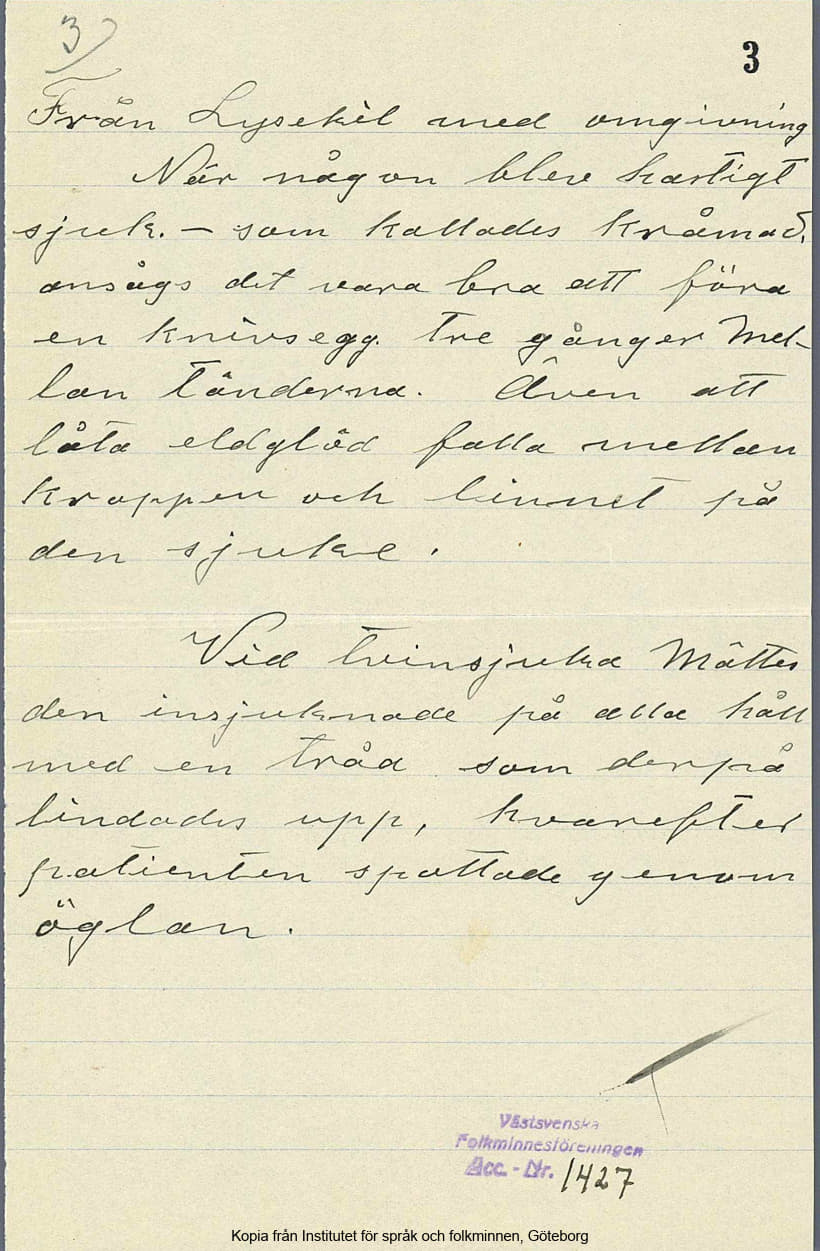 3)
3
Från Lysekil med omgivning
När någon blev hastigt
sjuk. – som kallades kråmad,
ansågs det vara bra att föra
en knivsegg tre gånger mel-
lan tänderna. Även att
låta eldglöd falla mellan
kroppen och linnet på
den sjuke.
Vid tvinsjuka mättes
den insjuknade på alla håll
med en tråd som derpå
lindades upp, hvarefter
patienten spottade genom
öglan.
Västsvenska
Folkminnesföreningen
Acc. - Nr. 1427
Kopia från Institutet för språk och folkminnen, Göteborg